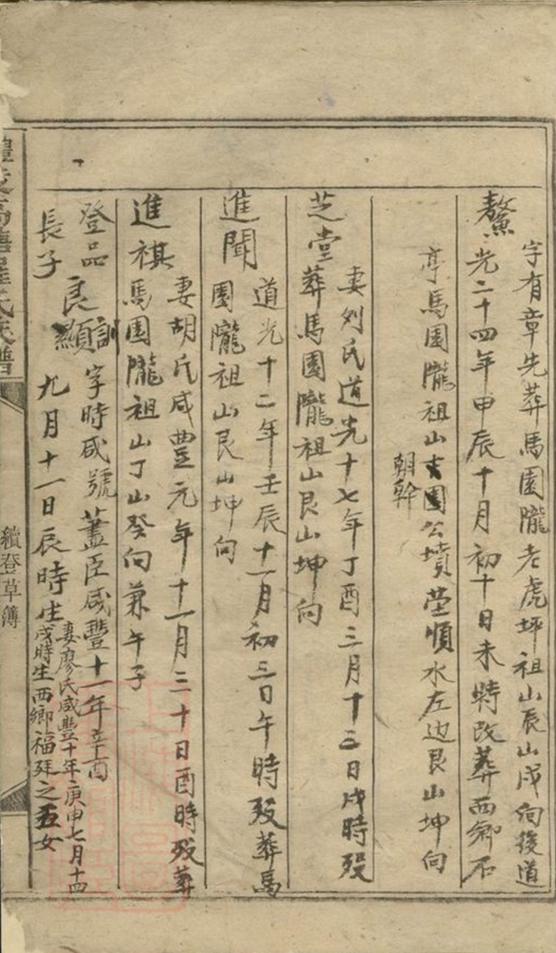 字有章先葬馬園隴老虎坪祖山辰山戌向後道
鰲光二十四年甲辰十月初十日未時改葬西鄉石
亭馬園隴祖山 園公墳塋順水左边艮山坤向
朝幹
妻刘氏道光十七年丁酉三月十三日戌時殁
芝堂葬馬園隴祖山艮山坤向
道光十二年壬辰十一月初三日午時殁葬馬
進聞園隴祖山艮山坤向
妻胡氏咸豐元年十一月三十日酉時殁葬
進祺馬園隴祖山丁山癸向兼午子
登品長子良顯訓字時咸號藎臣咸豐十一年辛酉
九月十一日辰時生妻廖氏咸豐十年庚申七月十四
戌時生西鄉福 之五女
氏族譜
續登草簿